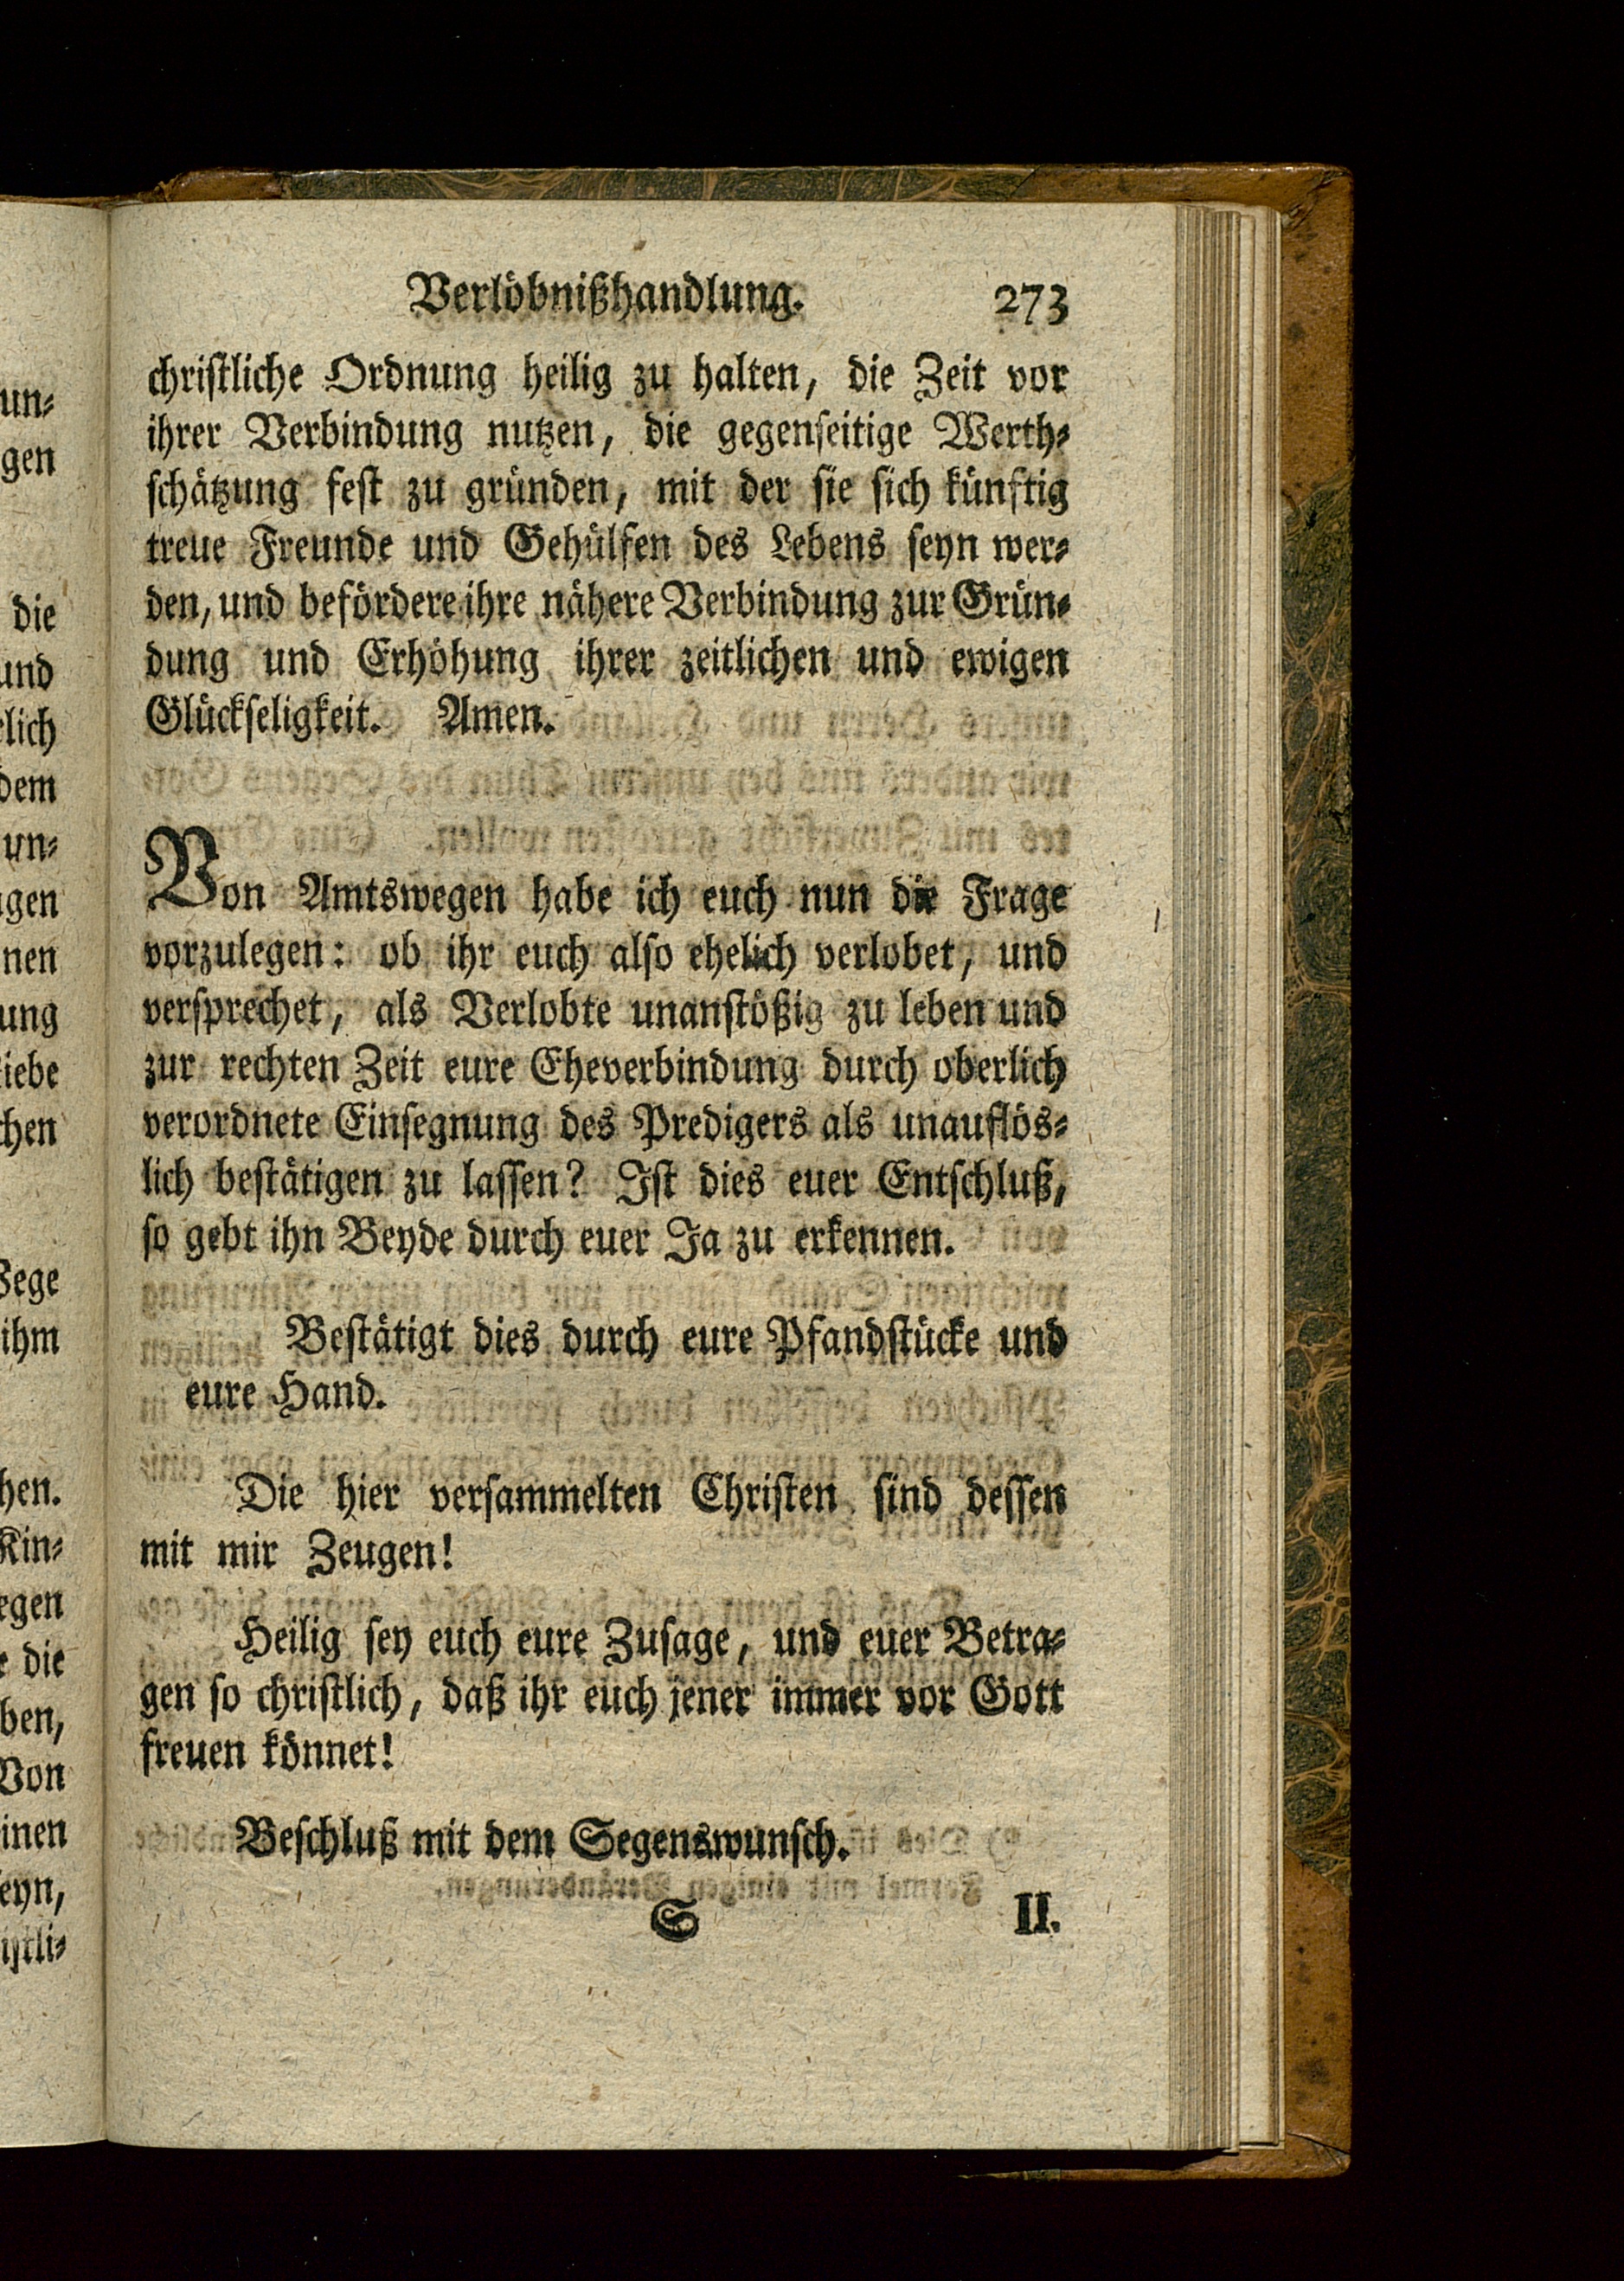 Verlöbnißhandlung. 273
christliche Ordnung heilig zu halten, die Zeit vor
ihrer Verbindung nutzen, die gegenseitige Werth-
schätzung fest zu gründen, mit der sie sich künftig
treue Freunde und Gehülfen des Lebens seyn wer-
den, und befördere ihre nähere Verbindung zur Grün-
dung und Erhöhung ihrer zeitlichen und ewigen
Glückseligkeit. Amen.
Von Amtswegen habe ich euch nun die Frage
vorzulegen: ob ihr euch also ehelich verlobet, und
versprechet, als Verlobte unanstößig zu leben und
zur rechten Zeit eure Eheverbindung durch oberlich
verordnete Einsegnung des Predigers als unauflös-
lich bestätigen zu lassen? Ist dies euer Entschluß,
so gebt ihn Beyde durch euer Ja zu erkennen.
Bestätigt dies durch eure Pfandstücke und
eure Hand.
Die hier versammelten Christen sind dessen
mit mir Zeugen!
Heilig sey euch eure Zusage, und euer Betra-
gen so christlich, daß ihr euch jener immer vor Gott
freuen könnet!
Beschluß mit dem Segenswunsch.
S II.